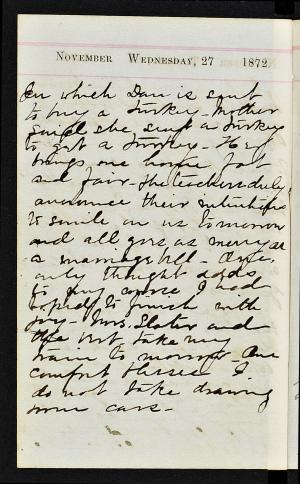 November Wednesday, 27 1872.
In which Dan is sent
to buy a turkey - Mother
said she sent a turkey
to get a turkey - He
brings one home fat
and fair - the teachers duly
announce their intentions
to smile on us tomorrow
and all goes as merry as
a marriage bell - One
only thought adds
to my I had
hoped to finish with
Mrs. Slater and
the rest take my
train to morrow - One
comfort I
do not take drawing
room cars -